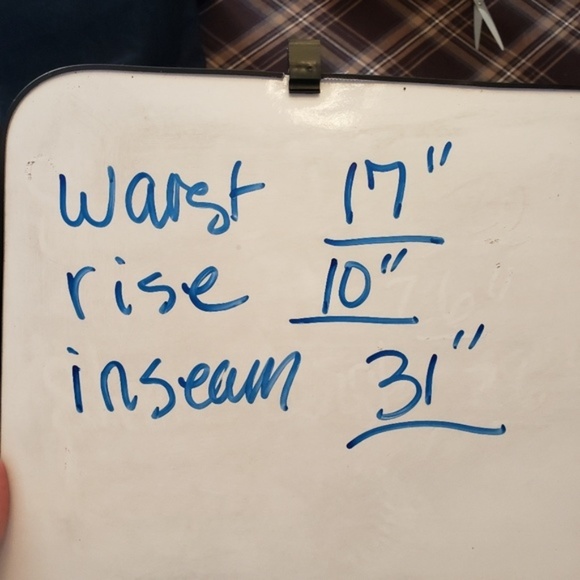 waist 17"
rise 10"
inseam 31"